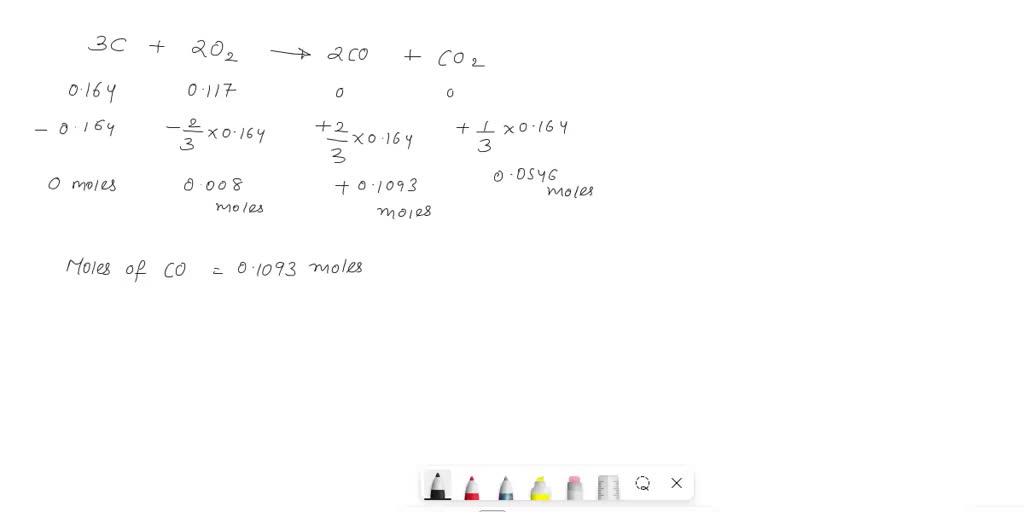 3C + 2O2 → 2CO + CO2
0.164 0.117 0 0
- 0.164 -2/3 × 0.164 +2/3 × 0.164 +1/3 × 0.164
0 moles 0.008 moles + 0.1093 moles 0.0546 moles
Moles of CO = 0.1093 moles